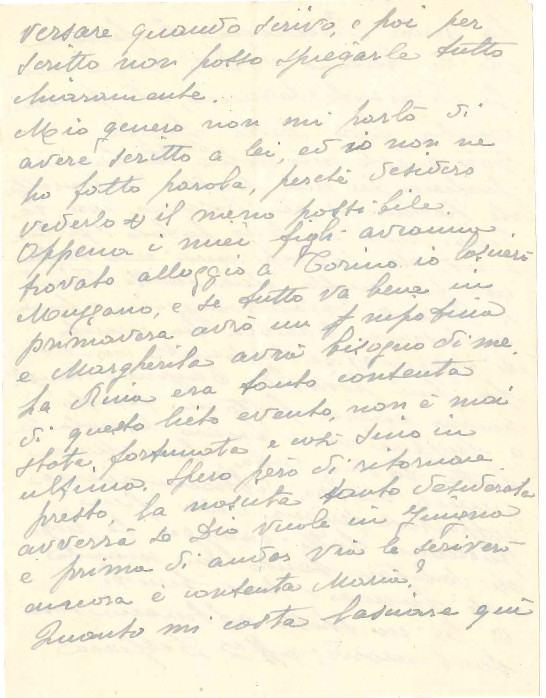 versare quando scrivo, e poi per
scritto non posso spiegarle tutto
chiaramente.
Mio genero non mi parlò di
avere scritto a lei, ed io non ne
ho fatto parola, perchè desidero
vederlo il meno possibile.
Appena i miei figli avranno
trovato alloggio a Torino io lascierò
e se tutto va bene in
primavera avrò un nipotino
e Margherita avrà bisogno di me.
La era tanto contenta
di questo lieto evento, non è mai
stata, fortunata e così sino in
ultimo. Spero però di ritornare
presto, la nascita tanto desiderata
avverrà se Dio vuole in Giugno
e prima di andar via le scriverò
ancora è contenta Maria?
Quanto mi costa lasciare qui